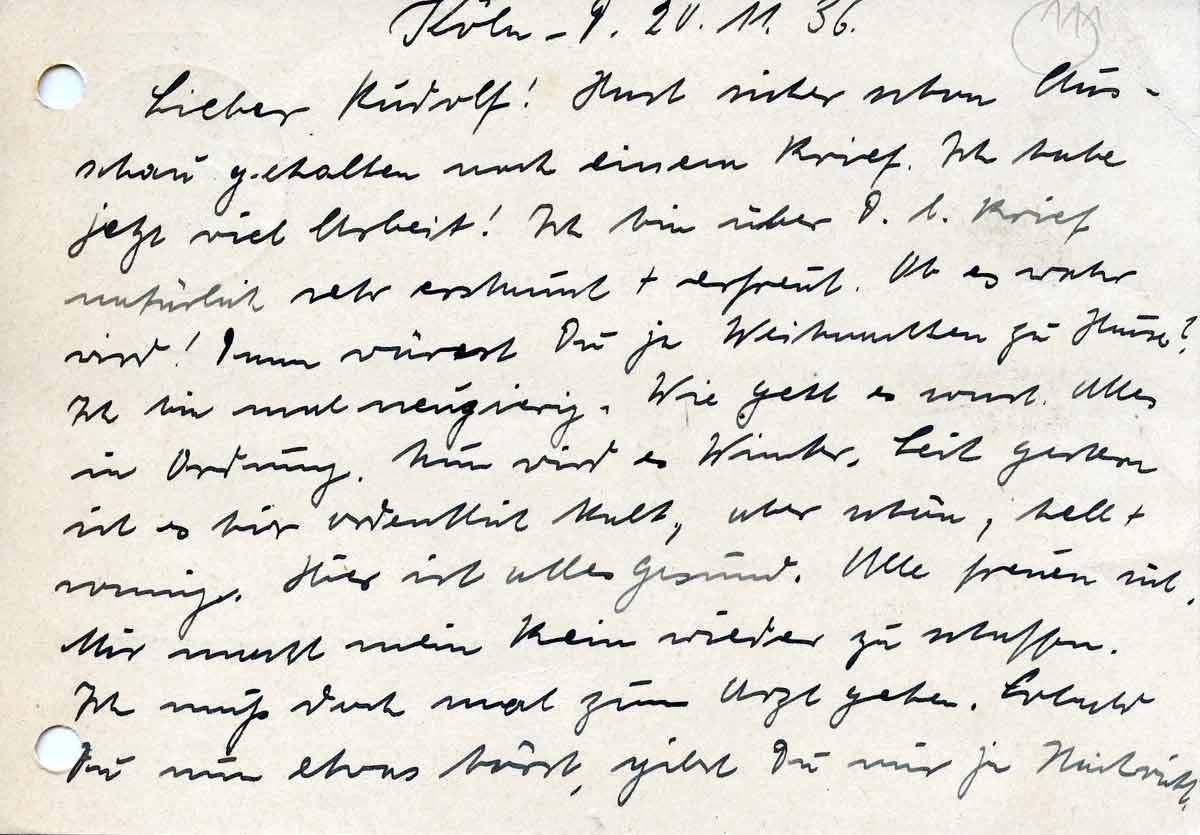 Köln - D. 20. 11. 36.
Lieber Rudolf! Hast sicher schon Aus-
schau gehalten nach einem Brief. Ich habe
jetzt viel Arbeit! Ich bin über D. l. Brief
natürlich sehr erstaunt + erfreut. Ob es wahr
wird! Dann wärest Du ja Weihnachten zu Hause?
Ich bin mal neugierig. Wie geht es sonst. Alles
in Ordnung. Nun wird es Winter. Seit gestern
ist es hier ordentlich kalt, aber schön, hell +
sonnig. Hier ist alles gesund. Alle freuen sich.
Mir macht mein Bein wieder zu schaffen.
Ich muß doch mal zum Arzt gehen. Sobald
Du nun etwas hörst, gibst Du mir ja Nachricht.